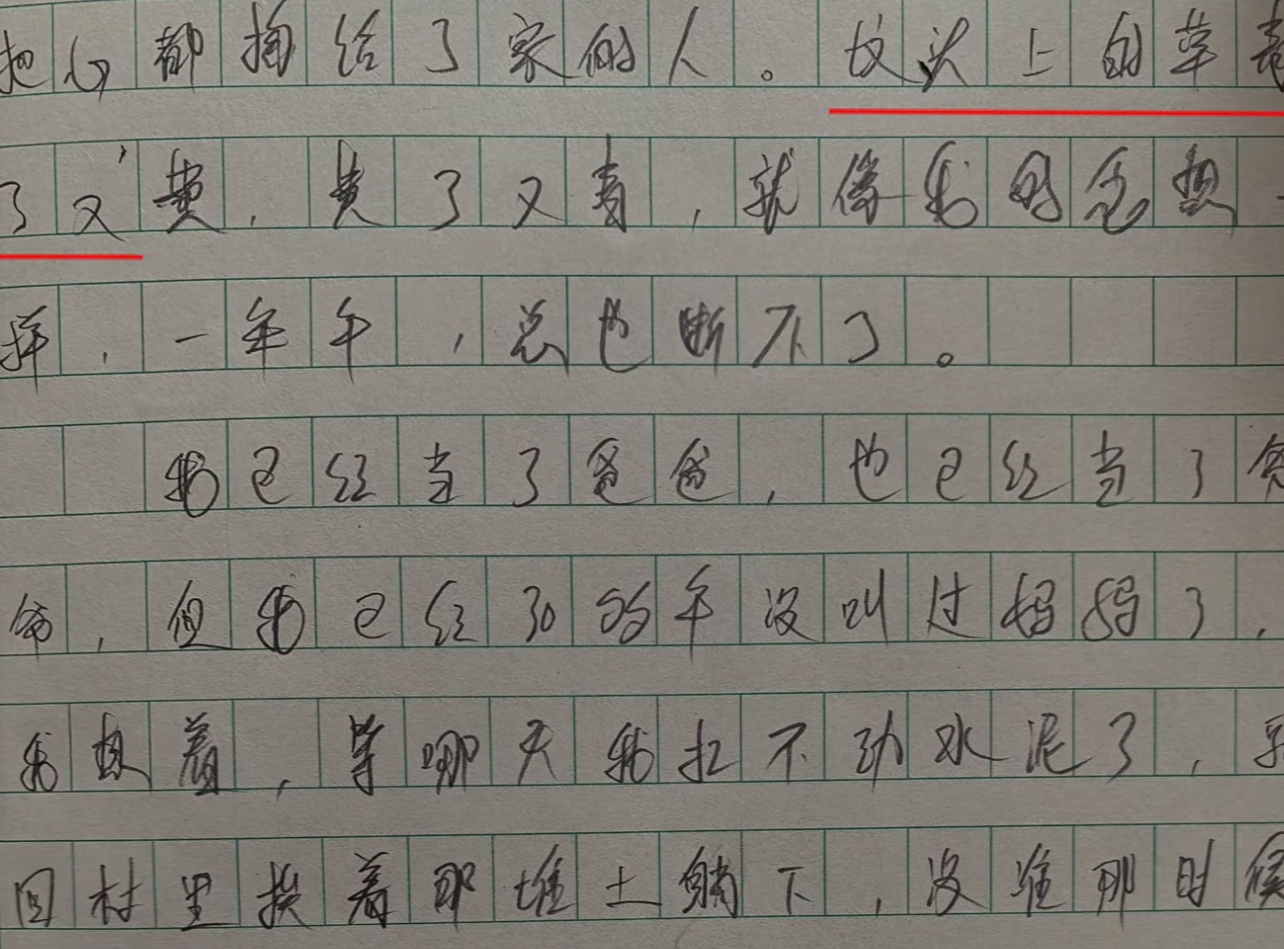 把心都掏给了家的人。坟头上的草青
了又黄，黄了又青，就像我的念想一
样，一年年，总也断不了。
我已经当了爸爸，也已经当了爷
爷，但我已经30多年没叫过妈妈了，
我想着，等哪天我扛不动水泥了，就
回村里挨着那堆土躺下，没准那时候